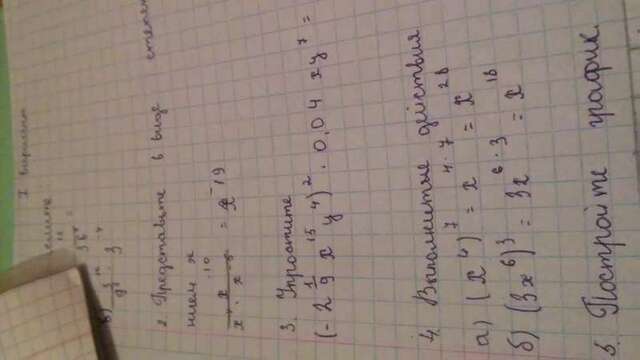 I вариант
3^-7
2. Представьте в виде степен
нием x
= x^-19
3. Упростите
(- 2 1/9 x^15 y^4)^2 · 0,04 xy^7 =
4. Выполнитые действия
а) (x^4)^7 = x^4·7 = x^28
б) (3x^6)^3 = 3x^6·3 = x^18
5. Постройте график.